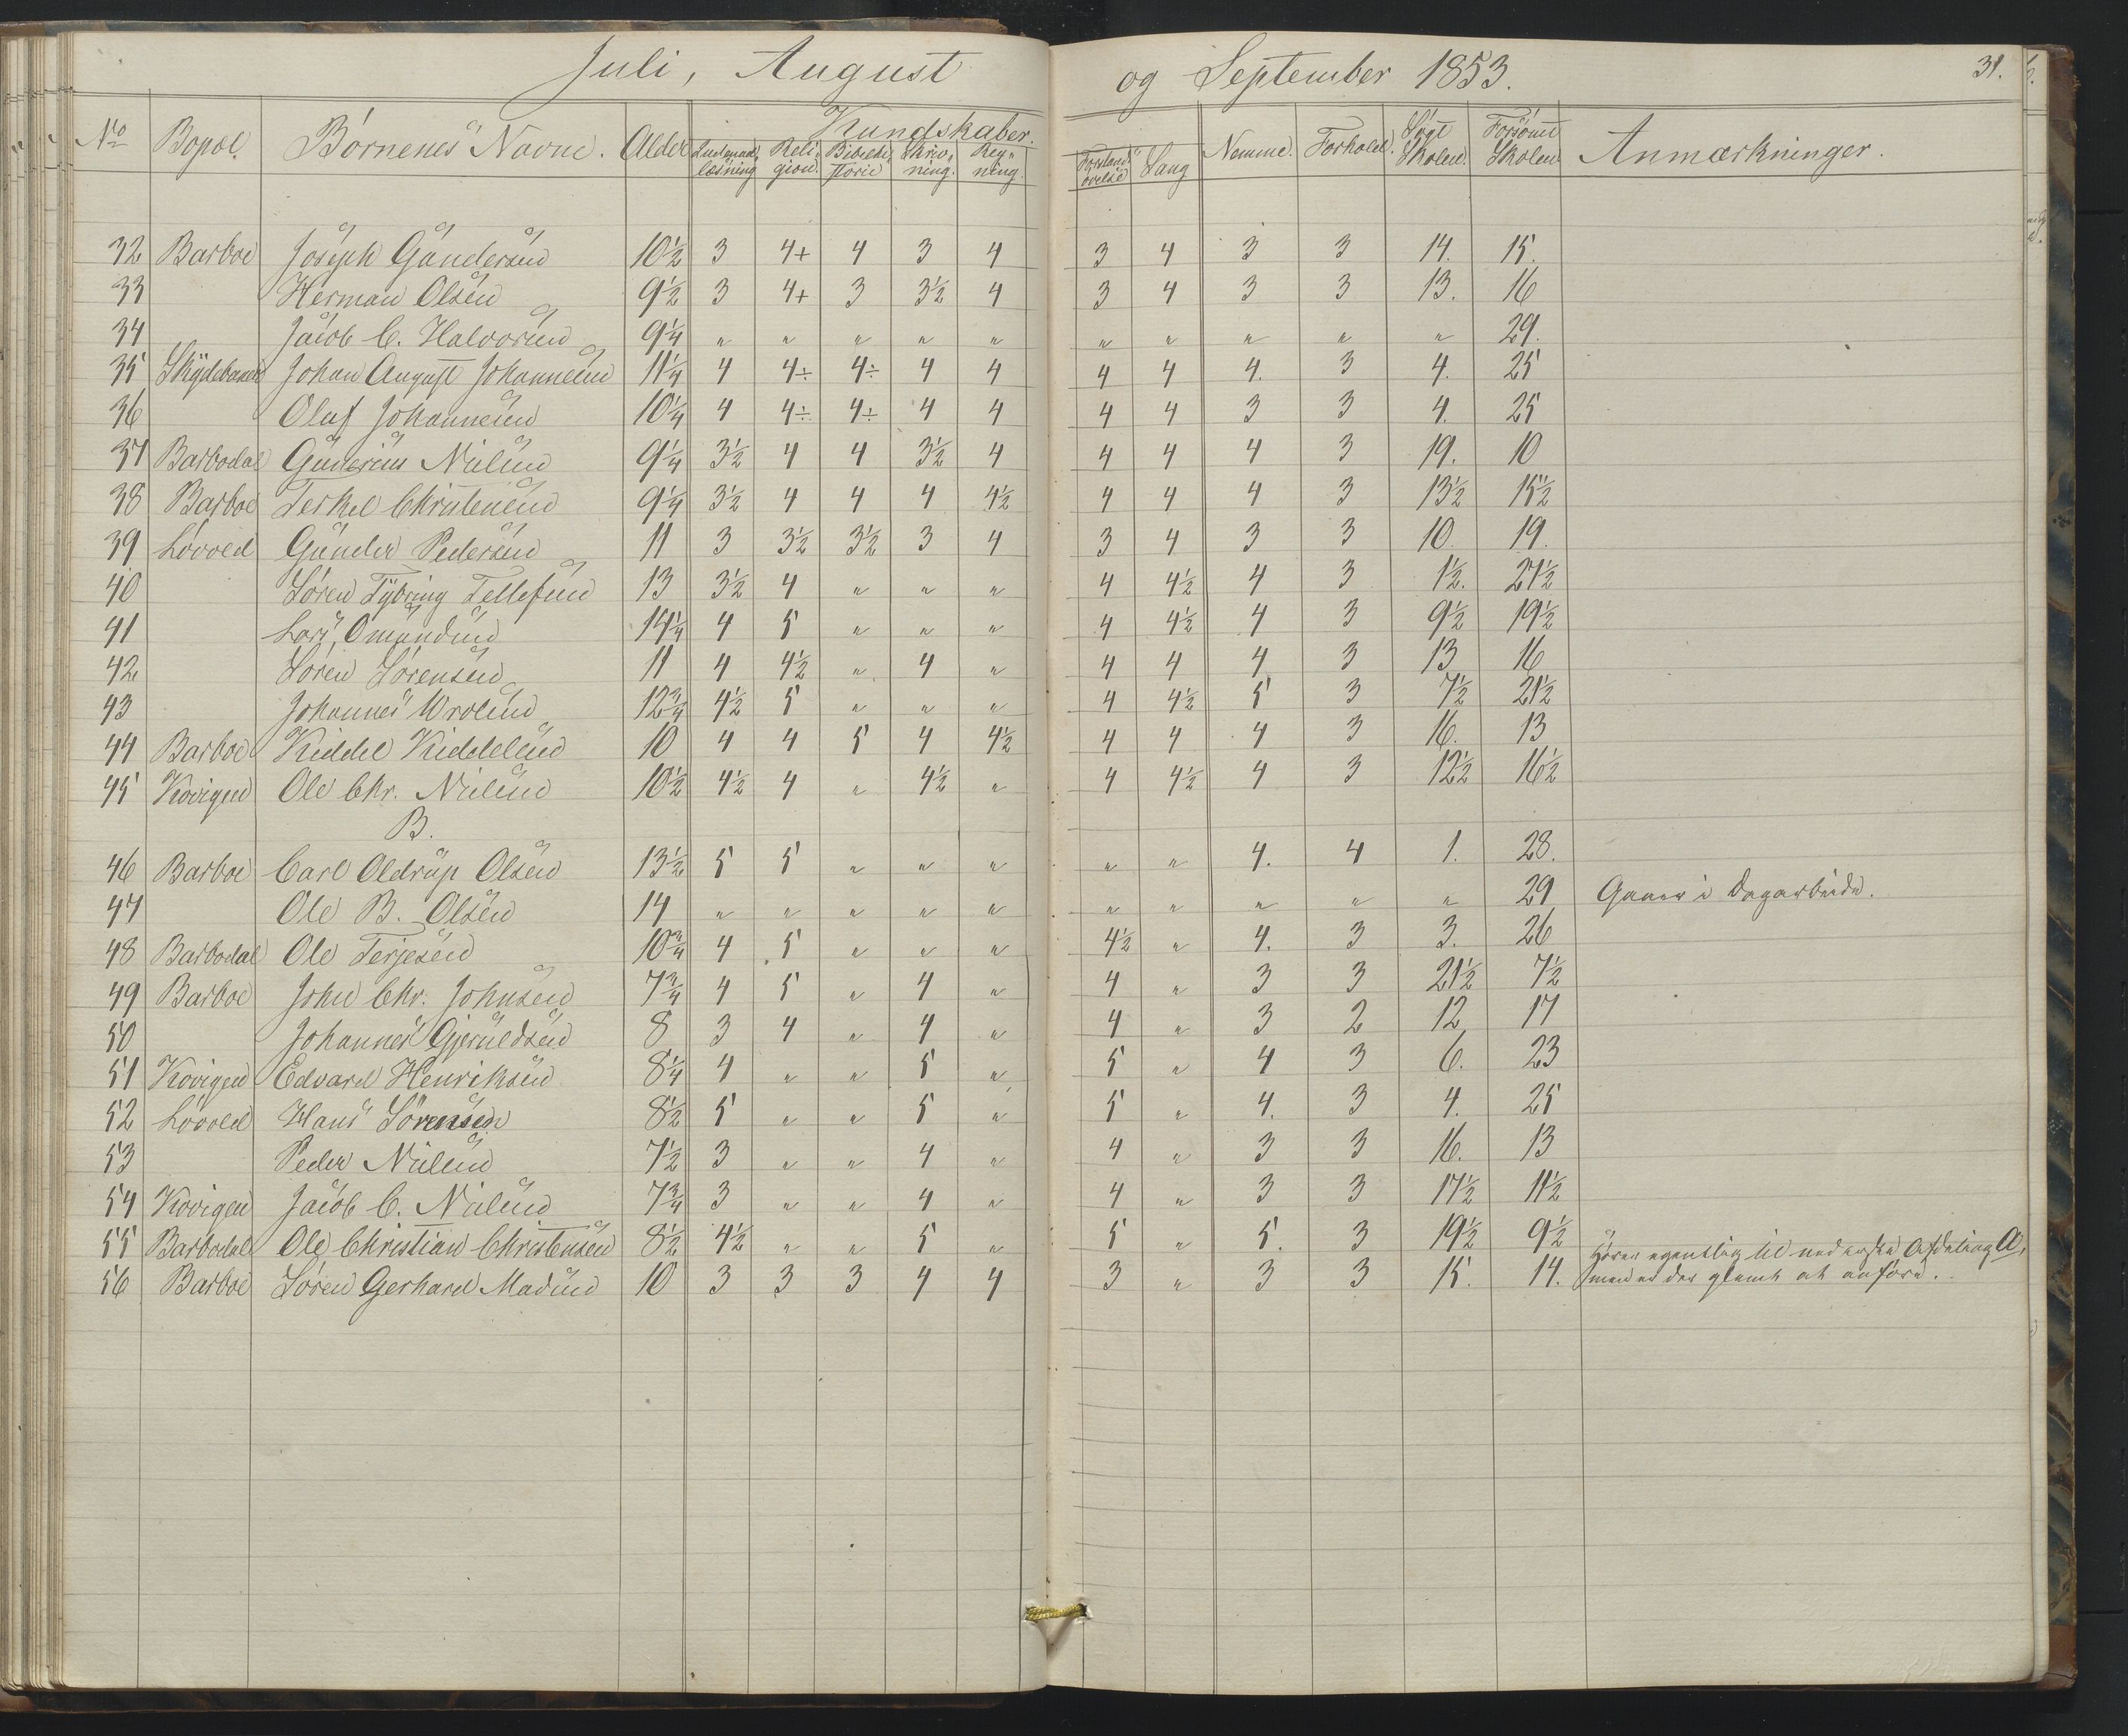 Juli, August og September 1853. 31.
No Bopæl. Børnenes Navne. Alder Kundskaber. Nemme. Forhold. Søgt Skolen. Forsømt Skolen Anmærkninger.
Indenad-læsning Reli-gion. Bibelhi-storie Skriv-ning. Reg-ning. Forstands-øvelse Sang
32 Barboe Joseph Gundersen 10½ 3 4+ 4 3 4 3 4 3 3 14. 15.
33 Herman Olsen 9½ 3 4+ 3 3½ 4 3 4 3 3 13. 16
34 Jacob C. Halvorsen 9¼ " " " " " " " " " " 29.
35 Skydebanen Johan August Johannesen 11¼ 4 4÷ 4÷ 4 4 4 4 4. 3 4. 25
36 Oluf Johannesen 10¼ 4 4÷ 4÷ 4 4 4 4 3 3 4. 25
37 Barbodal Gunerius Nielsen 9¼ 3½ 4 4 3½ 4 4 4 4 3 19. 10
38 Barboe Terkel Christensen 9¼ 3½ 4 4 4 4½ 4 4 4 3 13½ 15½
39 Løvold Gunder Pedersen 11 3 3½ 3½ 3 4 3 4 3 3 10. 19.
40 Søren Tybring Tellefsen 13 3½ 4 " " " 4 4½ 4 3 1½. 27½
41 Lars Omundsen 14¼ 4 5 " " " 4 4½ 4 3 9½ 19½
42 Søren Sørensen 11 4 4½ " 4 " 4 4 4 3 13 16
43 Johannes Wrolsen 12¾ 4½ 5 " " " 4 4½ 5 3 7½ 21½
44 Barboe Kiddel Kiddelsen 10 4 4 5 4 4½ 4 4 4 3 16. 13
45 Kovigen Ole Chr. Nielsen 10½ 4½ 4 " 4½ " 4 4½ 4 3 12½ 16½
B.
46 Barboe Carl Oldrup Olsen 13½ 5 5 " " " " " 4. 4 1. 28.
47 Ole B. Olsen 14 " " " " " " " " " " 29 Gaaer i Dagarbeide.
48 Barbodal Ole Terjesen 10¾ 4 5 " " " 4½ " 4. 3 3. 26
49 Barboe John Chr. Johnsen 7¾ 4 5 " 4 " 4 " 3 3 21½ 7½
50 Johannes Gjeruldsen 8 3 4 " 4 " 4 " 3 2 12 17
51 Kovigen Edvard Henriksen 8¼ 4 " " 5 " 5 " 4 3 6. 23
52 Løvold Hans Sørensen 8½ 5 " " 5 " 5 " 4. 3 4. 25
53 Peder Nielsen 7½ 3 " " 4 " 4 " 3 3 16. 13
54 Kovigen Jacob C. Nielsen 7¾ 3 " " 4 " 4 " 3 3 17½ 11½
55 Barbodal Ole Christian Christensen 8½ 4½ " " 5 " 5 " 5. 3 19½ 9½
56 Barboe Søren Gerhard Madsen 10 3 3 3 4 4 3 " 3 3 15. 14. Hører egentlig til nederste Afdeling A,
men er der glemt at anføre.